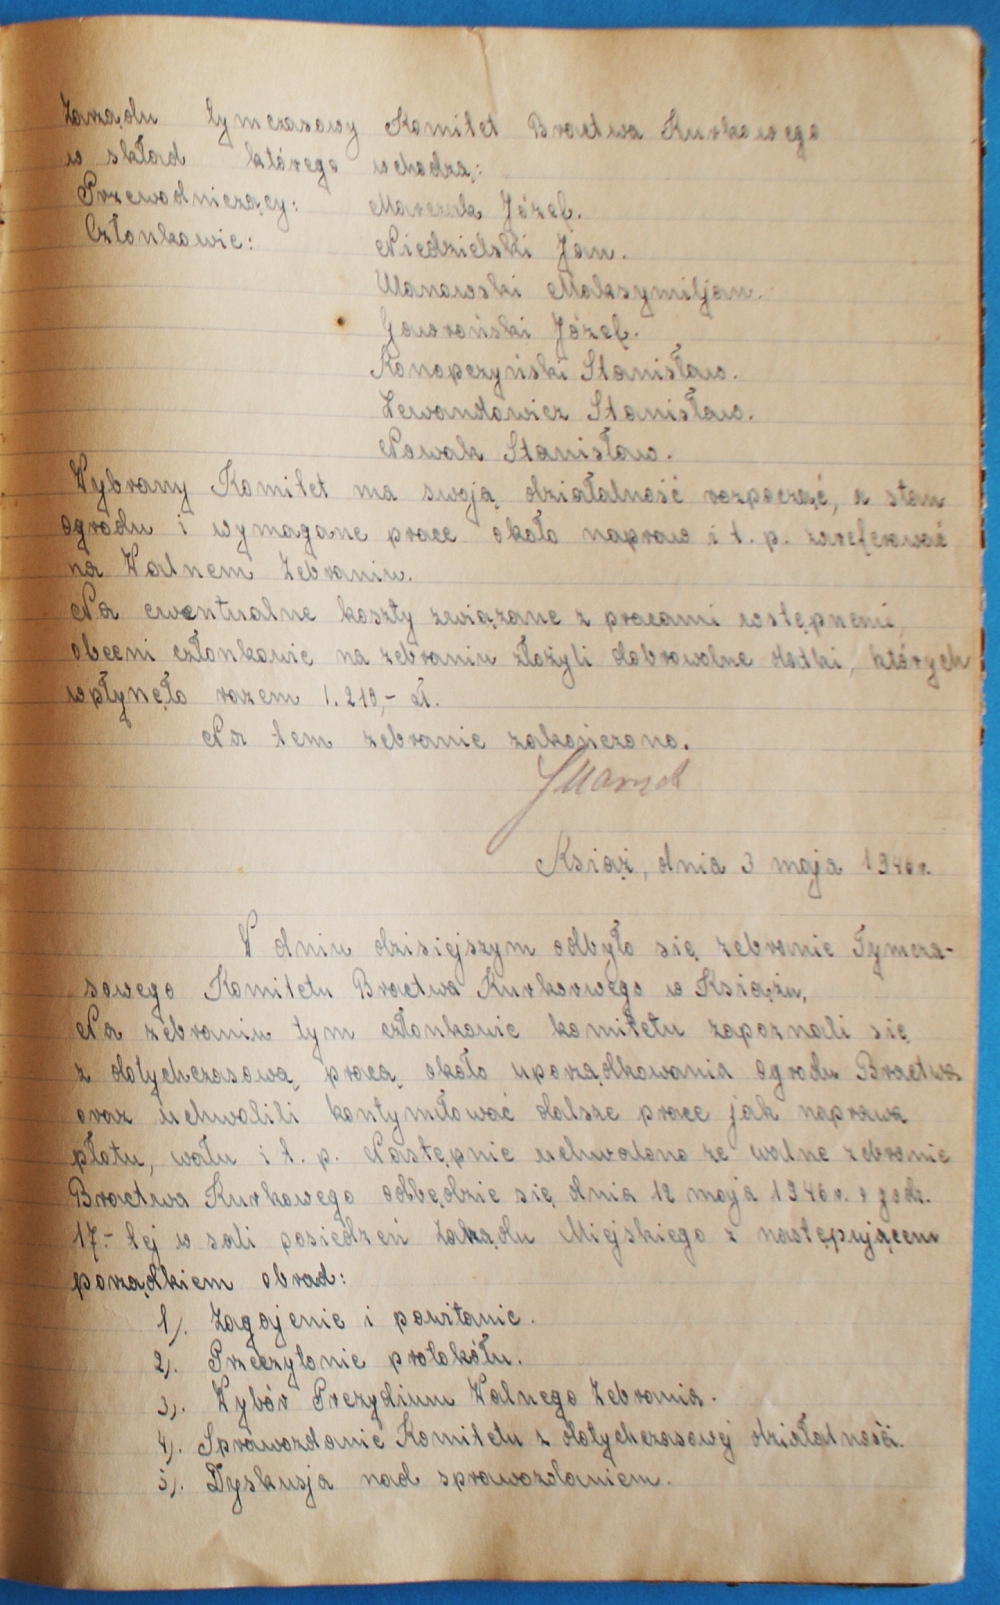 Zarządu tymczasowy Komitet Bractwa Kurkowego
w skład którego wchodzą:
Przewodniczący: Marczak Józef.
Członkowie: Niedzielski Jan.
Ulanowski Maksymiljan.
Gaworoński Józef.
Konopczyński Stanisław.
Lewandowicz Stanisław.
Nowak Stanisław.
Wybrany Komitet ma swoją działalność rozpocząć, a stan
ogrodu i wymagane prace około napraw i t. p. zareferować
na Walnem Zebraniu.
Na ewentualne koszty związane z pracami wstępnemi,
obecni członkowie na zebraniu złożyli dobrowolne datki, których
wpłynęło razem 1.210,- zł.
Na tem zebranie zakończono.
Książ, dnia 3 maja 1946 r.
W dniu dzisiejszym odbyło się zebranie Tymcza-
sowego Komitetu Bractwa Kurkowego w Książu.
Na zebraniu tym członkowie komitetu zapoznali się
z dotychczasową pracą około uporządkowania ogrodu Bractwa
oraz uchwalili kontynuować dalsze prace jak naprawa
płotu, wału i t. p. Następnie uchwalono że walne zebranie
Bractwa Kurkowego odbędzie się dnia 12 maja 1946 r. o godz.
17.- tej w sali posiedzeń Zarządu Miejskiego z następującem
porządkiem obrad:
1). Zagojenie i powitanie.
2). Przeczytanie protokółu.
3). Wybór Prezydium Walnego Zebrania.
4). Sprawozdanie Komitetu z dotychczasowej działalności.
5). Dyskusja nad sprawozdaniem.